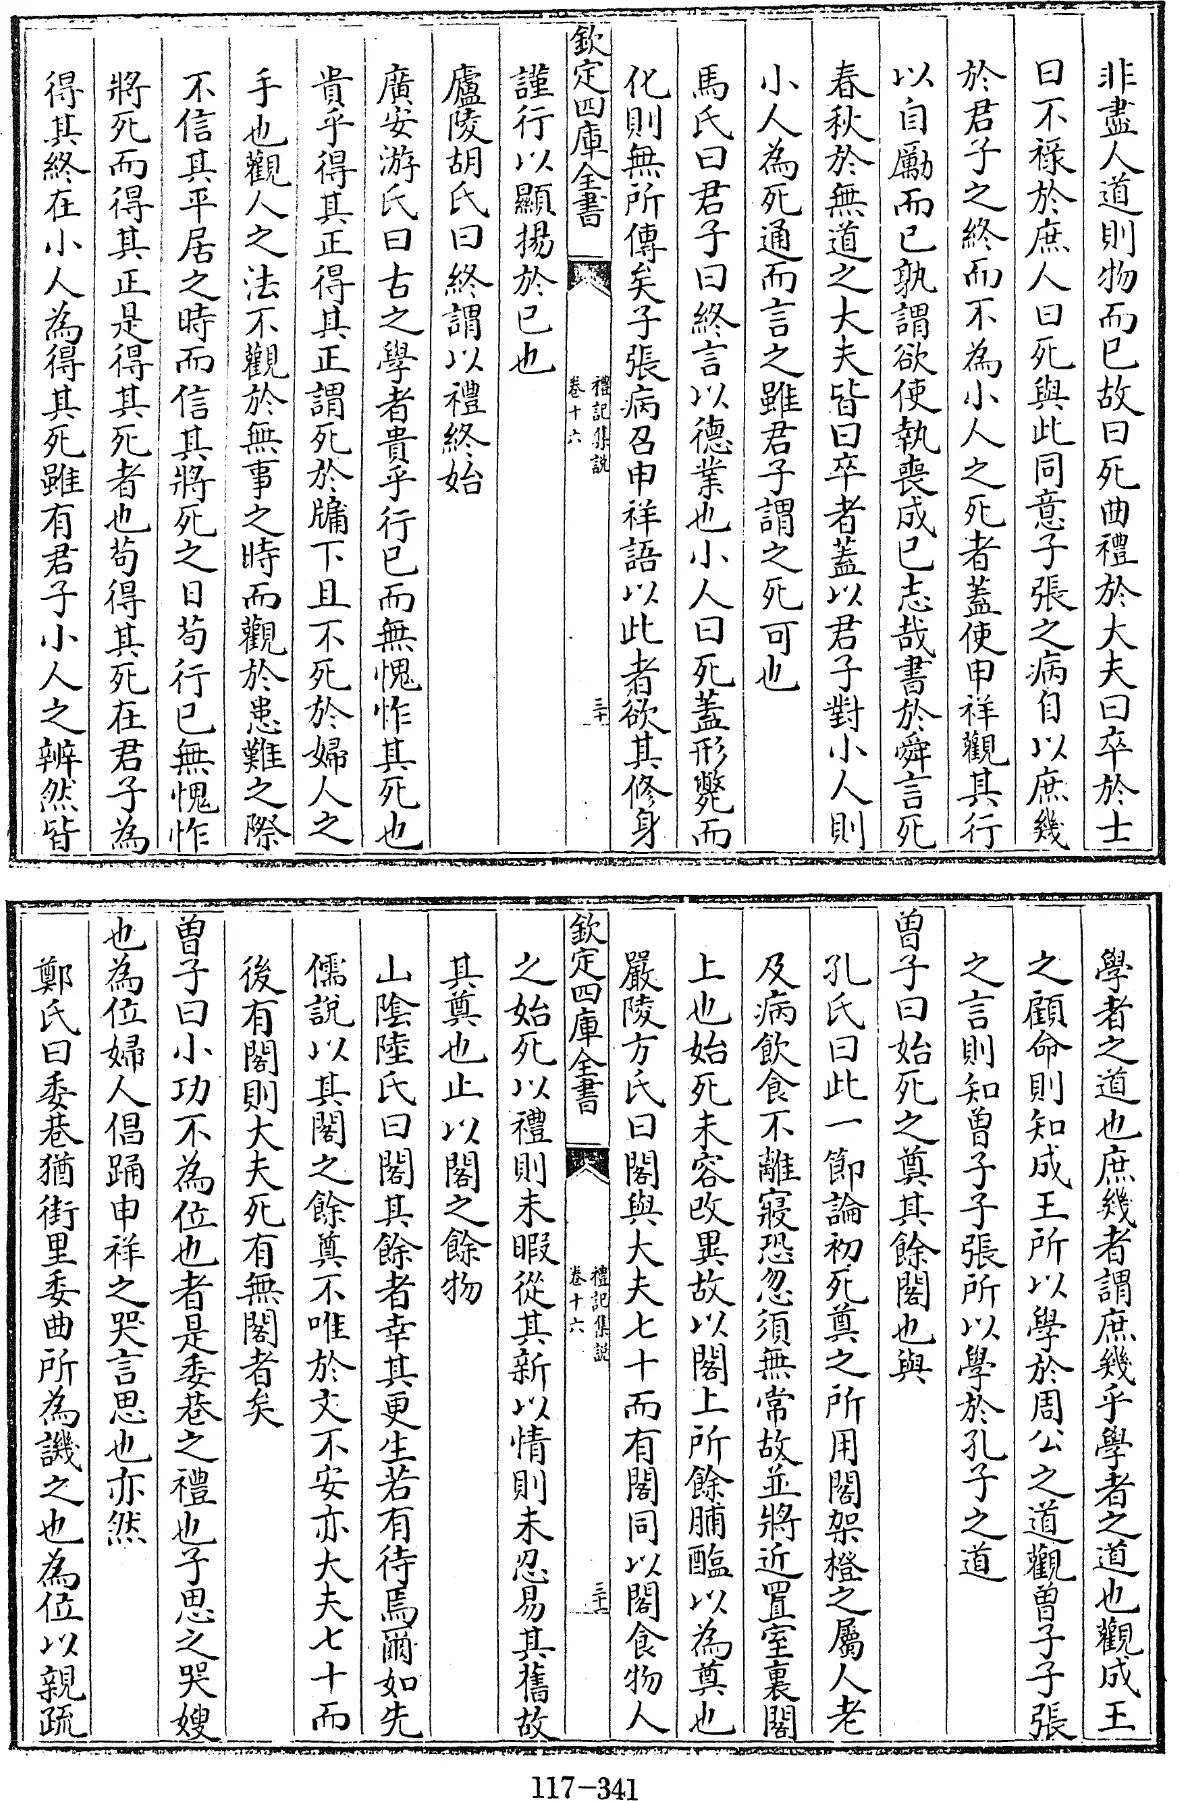 非盡人道則物而已故曰死曲禮於大夫曰卒於士
曰不祿於庶人曰死與此同意子張之病自以庶幾
於君子之終而不為小人之死者蓋使申祥觀其行
以自勵而已孰謂欲使執喪成已志哉書於舜言死
春秋於無道之大夫皆曰卒者蓋以君子對小人則
小人為死通而言之雖君子謂之死可也
馬氏曰君子曰終言以德業也小人曰死蓋形斃而
化則無所傳矣子張病召申祥語以此者欲其修身
欽定四庫全書
禮記集説
卷十六
三十
謹行以顯揚於已也
廬陵胡氏曰終謂以禮終始
廣安游氏曰古之學者貴乎行已而無愧怍其死也
貴乎得其正得其正謂死於牖下且不死於婦人之
手也觀人之法不觀於無事之時而觀於患難之際
不信其平居之時而信其將死之日茍行已無愧怍
將死而得其正是得其死者也茍得其死在君子為
得其終在小人為得其死雖有君子小人之辨然皆
學者之道也庶幾者謂庶幾乎學者之道也觀成王
之顧命則知成王所以學於周公之道觀曽子子張
之言則知曽子子張所以學於孔子之道
曽子曰始死之奠其餘閣也與
孔氏曰此一節論初死奠之所用閣架橙之屬人老
及病飲食不離寢恐忽須無常故並將近置室裏閣
上也始死未容改異故以閣上所餘脯醢以為奠也
嚴陵方氏曰閣與大夫七十而有閣同以閣食物人
欽定四庫全書
禮記集説
卷十六
三十一
之始死以禮則未暇從其新以情則未忍易其舊故
其奠也止以閣之餘物
山陰陸氏曰閣其餘者幸其更生若有待焉爾如先
儒説以其閣之餘奠不唯於文不安亦大夫七十而
後有閣則大夫死有無閣者矣
曽子曰小功不為位也者是委巷之禮也子思之哭嫂
也為位婦人倡踊申祥之哭言思也亦然
鄭氏曰委巷猶街里委曲所為譏之也為位以親疏
117-341